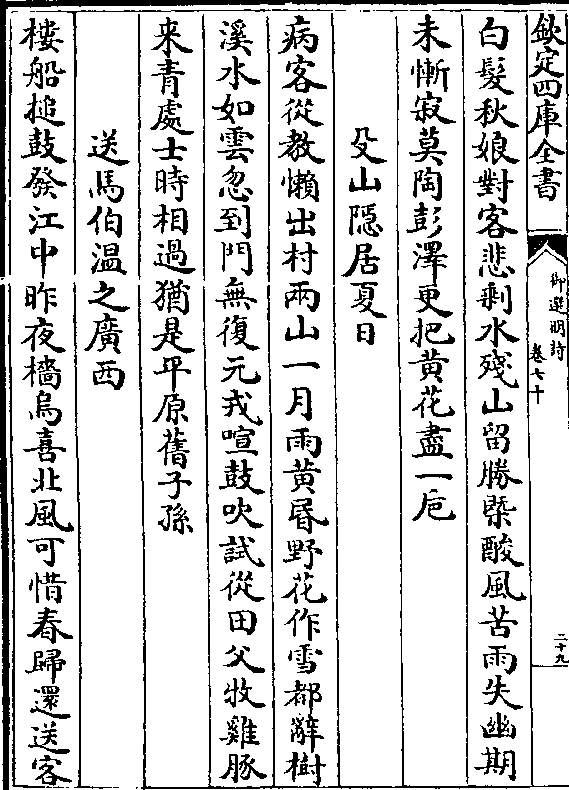 欽定四庫全書
御選明詩
卷七十
二十九
白髮秋娘對客悲剩水殘山留勝槩酸風苦雨失幽期
未慚寂莫陶彭澤更把黃花盡一巵
殳山隱居夏日
病客從教懶出村兩山一月雨黃昏野花作雪都辭樹
溪水如雲忽到門無復元戎喧鼓吹試從田父牧雞豚
来青處士時相過猶是平原舊子孫
送馬伯温之廣西
樓船搥鼓發江中昨夜檣烏喜北風可惜春歸還送客